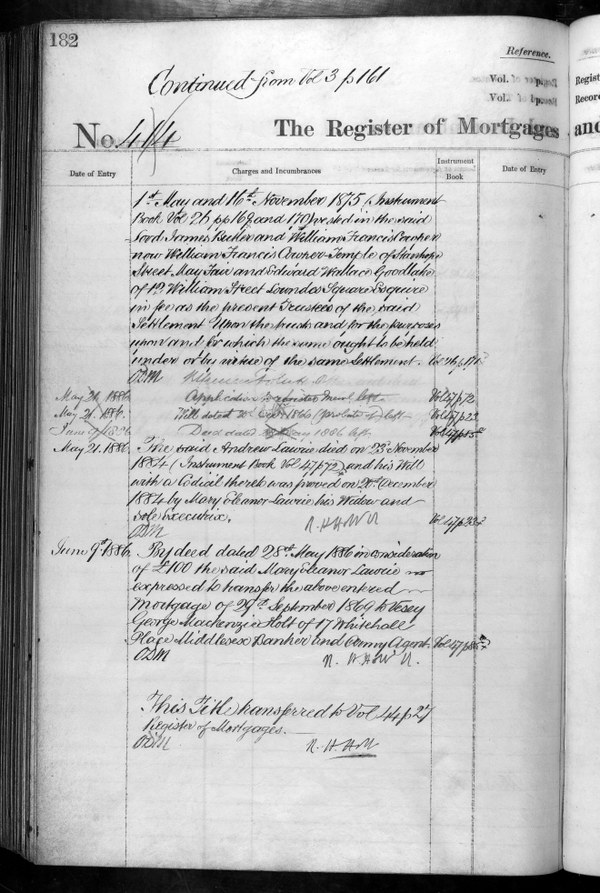 182
Reference.
Continued from Vol 3 p 161
Vol. p.
Vol. p.
No. 414 The Register of Mortgages
Date of Entry Charges and Incumbrances Instrument Book Date of Entry
1st May and 16th November 1875 (Instrument
Book Vol 26 pp 169 and 170) vested in the said
Lord James Butler and William Francis Cowper
now William Francis Cowper-Temple of Stanhope
Street May Fair and Edward Wallace Goodlake
of 19 William Street Lowndes Square Esquire
in fee as the present Trustees of the said
Settlement Upon the trusts and for the purposes
upon and for which the same ought to be held
under or by virtue of the same Settlement.
ODM
May 21, 1886. Application to register left Vol 47 p 72
May 21. 1886. Will dated 1866 (Probate of) left
Deed dated May 1886 left
May 21. 1886. The said Andrew Lawrie died on 23rd November
1884 (Instrument Book Vol 47 p 72) and his Will
with a Codicil thereto was proved on 20th December
1884 by Mary Eleanor Lawrie his Widow and
sole Executrix.
ODM
June 9th 1886. By deed dated 28th May 1886 in consideration
of £100 the said Mary Eleanor Lawrie
expressed to transfer the above entered
Mortgage of 29th September 1869 to Vesey
George Mackenzie Holt of 17 Whitehall
Place Middlesex Banker and Army Agent.
ODM
This Title transferred to Vol 44 p 27
Register of Mortgages.
ODM
Regist
Recor
and